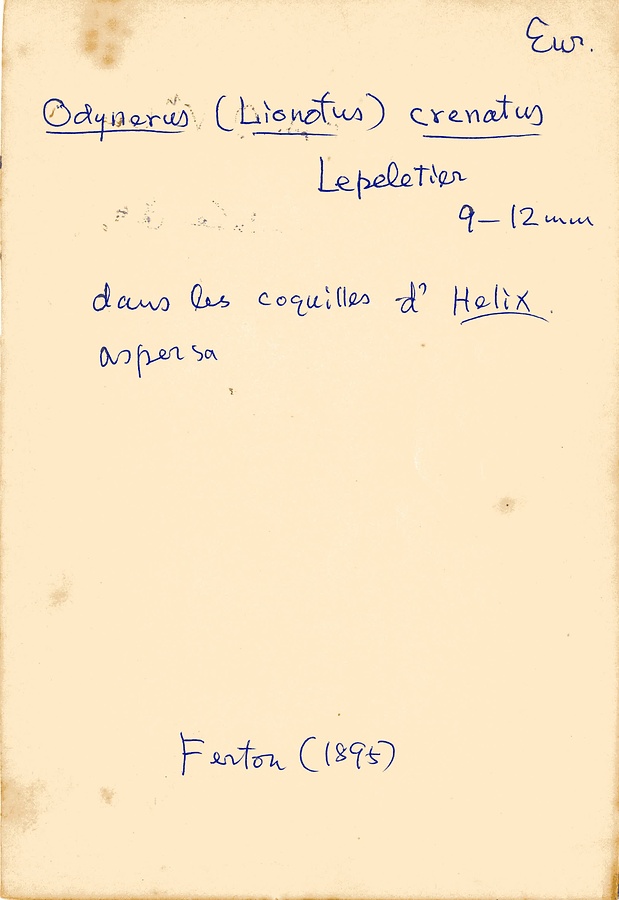 Eur.
Odynerus (Lionotus) crenatus
Lepeletier
9–12 mm
dans les coquilles d' Helix
aspersa
Ferton (1895)